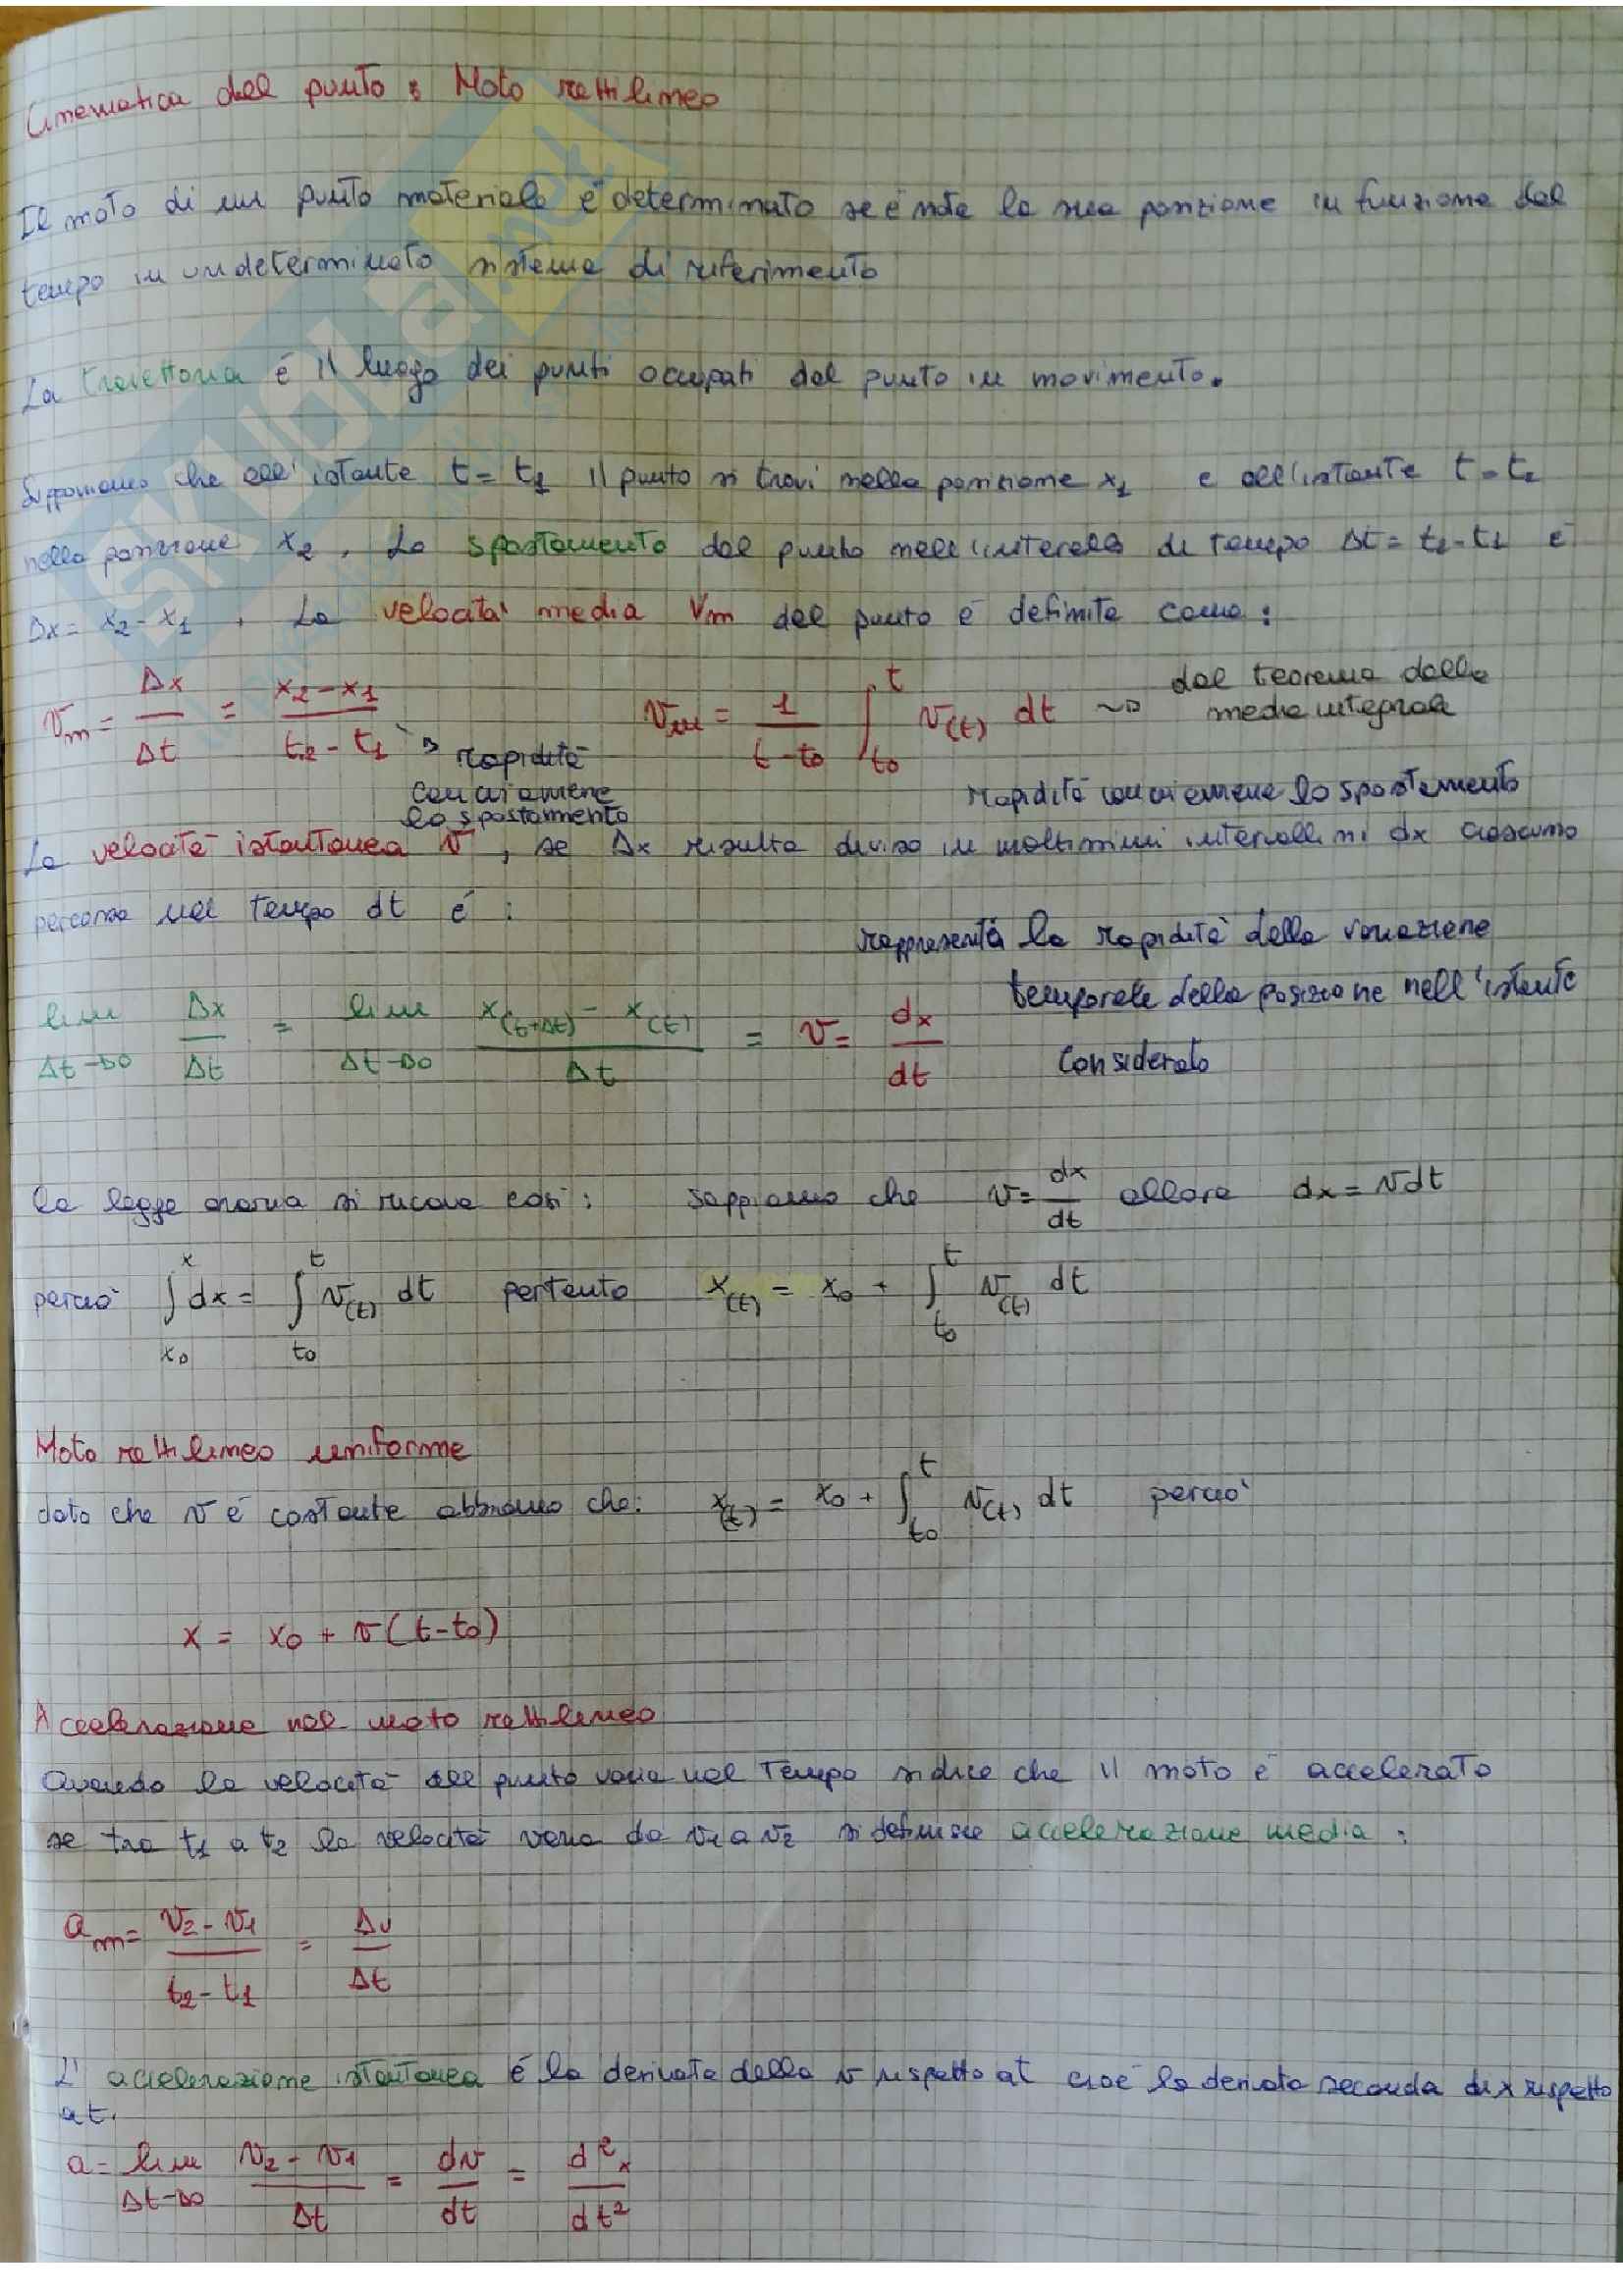 Cinematica del punto : Moto rettilineo
Il moto di un punto materiale è determinato se è nota la sua posizione in funzione del
tempo in un determinato sistema di riferimento
La traiettoria è il luogo dei punti occupati dal punto in movimento.
Supponiamo che all'istante t = t1 il punto si trovi nella posizione x1 e all'istante t = t2
nella posizione x2 . Lo spostamento del punto nell'intervallo di tempo Δt = t2 - t1 è
Δx = x2 - x1 . La velocità media Vm del punto è definita come :
vm = Δx/Δt = (x2 - x1)/(t2 - t1) → rapidità con cui avviene lo spostamento
vm = 1/(t - t0) ∫t0^t v(t) dt ~> dal teorema della media integrale
rapidità con cui avviene lo spostamento
La velocità istantanea v , se Δx risulta diviso in moltissimi intervallini dx ciascuno
percorso nel tempo dt è :
rappresenta la rapidità della variazione
temporale della posizione nell'istante
considerato
lim Δt→0 Δx/Δt = lim Δt→0 (x(t+Δt) - x(t))/Δt = v = dx/dt
la legge oraria si ricava così : sappiamo che v = dx/dt allora dx = v dt
perciò ∫x0^x dx = ∫t0^t v(t) dt pertanto x(t) = x0 + ∫t0^t v(t) dt
Moto rettilineo uniforme
dato che v è costante abbiamo che: x(t) = x0 + ∫t0^t v(t) dt perciò
x = x0 + v(t-t0)
Accelerazione nel moto rettilineo
Quando la velocità del punto varia nel tempo si dice che il moto è accelerato
se tra t1 a t2 la velocità varia da v1 a v2 si definisce accelerazione media :
am = (v2 - v1)/(t2 - t1) = Δv/Δt
L'accelerazione istantanea è la derivata della v rispetto a t cioè la derivata seconda di x rispetto
a t.
a = lim Δt→0 (v2 - v1)/Δt = dv/dt = d²x/dt²
SKUOLA.net